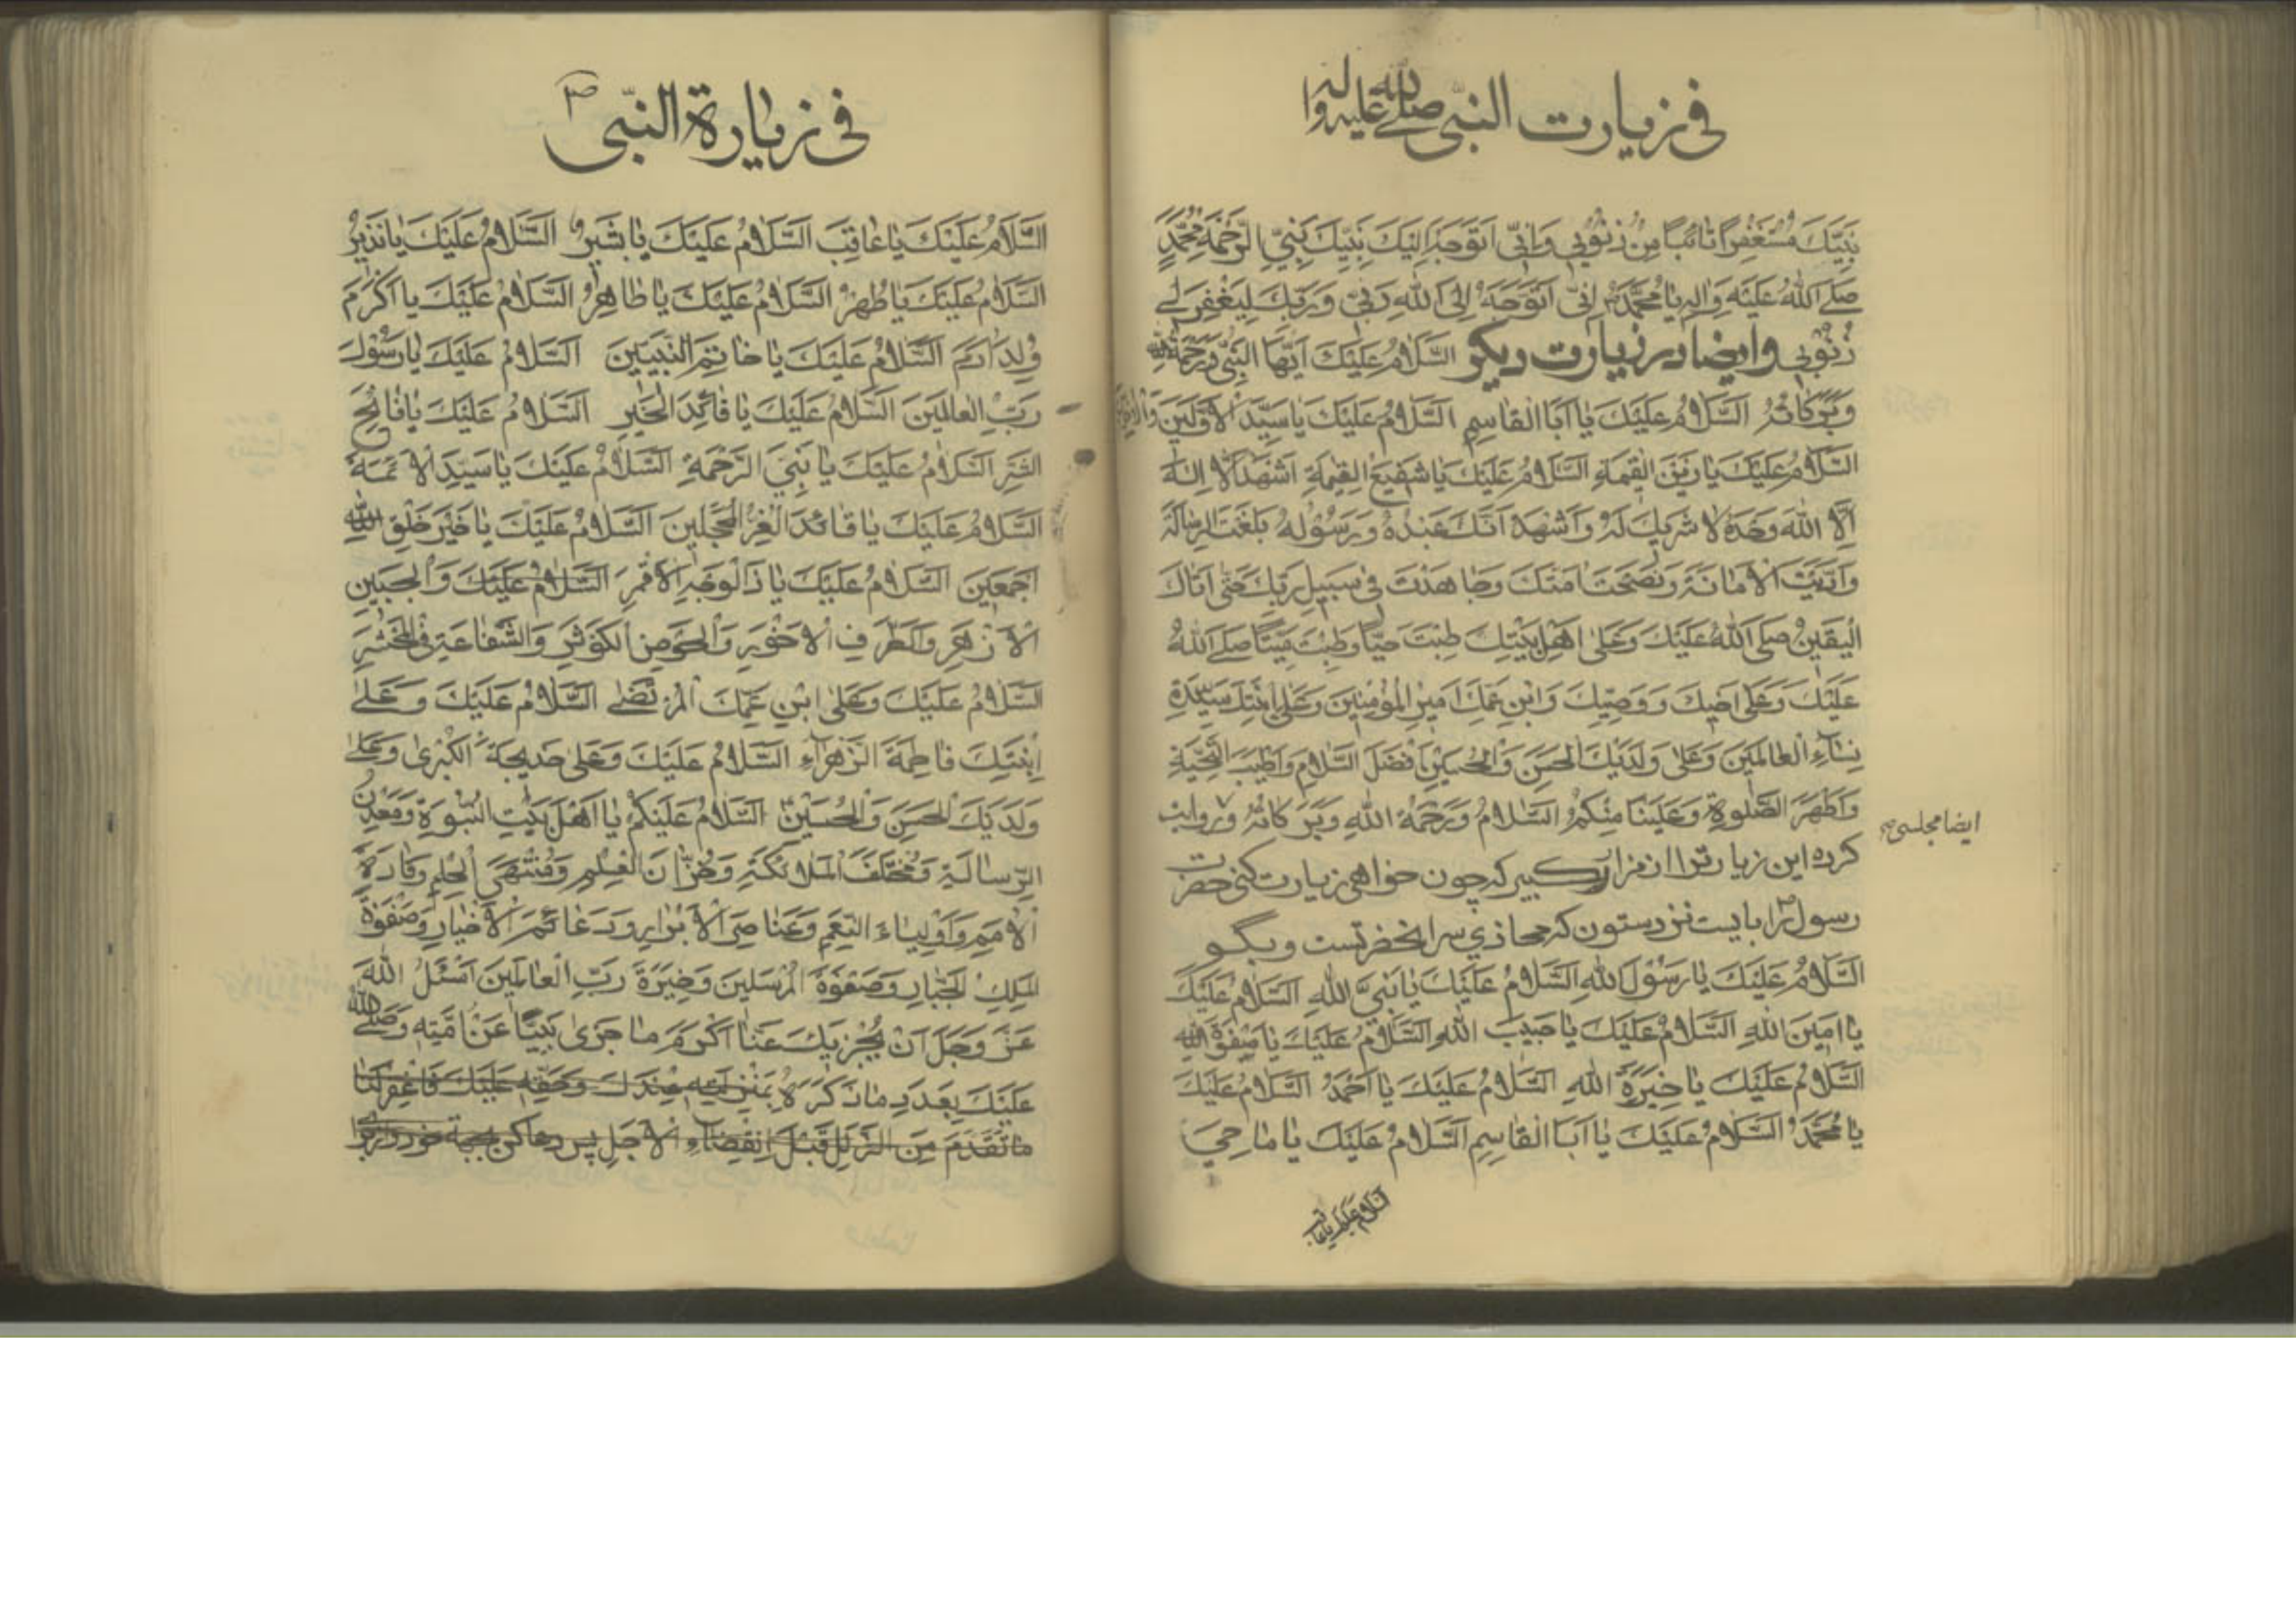 فی زیارت النبی صلی الله علیه واله
نَبِيَّكَ مُسْتَغْفِرًا تَائِبًا مِنْ ذُنُوبِي وَاِنّي اَتَوَجَّهُ اِلَيْكَ بِنَبِيِّكَ نَبِيِّ الرَّحْمَةِ مُحَمَّدٍ
صَلَّى اللهُ عَلَيْهِ وَالِهِ يَا مُحَمَّدُ اِنّي اَتَوَجَّهُ اِلَى اللهِ رَبّي وَرَبِّكَ لِيَغْفِرَ لي
ذُنُوبي وایضا در زیارت دیکر السَّلَامُ عَلَيْكَ اَيُّهَا النَّبِيُّ وَرَحْمَةُ اللهِ
وَبَرَكَاتُهُ السَّلَامُ عَلَيْكَ يَا اَبَا الْقَاسِمِ السَّلَامُ عَلَيْكَ يَا سَيِّدَ الْاَوَّلينَ وَالْاٰخِرينَ
السَّلَامُ عَلَيْكَ يَا زَيْنَ الْقِيٰمَةِ السَّلَامُ عَلَيْكَ يَا شَفيعَ الْقِيٰمَةِ اَشْهَدُ اَنْ لَا اِلٰهَ
اِلَّا اللهُ وَحْدَهُ لَا شَريكَ لَهُ وَاَشْهَدُ اَنَّكَ عَبْدُهُ وَرَسُولُهُ بَلَّغْتَ الرِّسَالَةَ
وَاَدَّيْتَ الْاَمَانَةَ وَنَصَحْتَ اُمَّتَكَ وَجَاهَدْتَ في سَبيلِ رَبِّكَ حَتّٰى اَتَاكَ
الْيَقينُ صَلَّى اللهُ عَلَيْكَ وَعَلٰى اَهْلِ بَيْتِكَ طِبْتَ حَيًّا وَطِبْتَ مَيِّتًا صَلَّى اللهُ
عَلَيْكَ وَعَلٰى اَخيكَ وَوَصِيِّكَ وَابْنِ عَمِّكَ اَميرِ الْمُؤْمِنينَ وَعَلٰى ابْنَتِكَ سَيِّدَةِ
نِسَاءِ الْعَالَمينَ وَعَلٰى وَلَدَيْكَ الْحَسَنِ وَالْحُسَيْنِ اَفْضَلَ السَّلَامِ وَاَطْيَبَ التَّحِيَّةِ
وَاَطْهَرَ الصَّلٰوةِ وَعَلَيْنَا مِنْكُمُ السَّلَامُ وَرَحْمَةُ اللهِ وَبَرَكَاتُهُ وروایت
ایضا مجلسی
کرده این زیارترا از مزار کبیر که چون خواهی زیارت کنی حضرت
رسول را بایست نزد ستون که محاذی سر انحضرتست و بگو
السَّلَامُ عَلَيْكَ يَا رَسُولَ اللهِ السَّلَامُ عَلَيْكَ يَا نَبِيَّ اللهِ السَّلَامُ عَلَيْكَ
يَا اَمينَ اللهِ السَّلَامُ عَلَيْكَ يَا حَبيبَ اللهِ السَّلَامُ عَلَيْكَ يَا صِفْوَةَ اللهِ
السَّلَامُ عَلَيْكَ يَا خِيَرَةَ اللهِ السَّلَامُ عَلَيْكَ يَا اَحْمَدُ السَّلَامُ عَلَيْكَ
يَا مُحَمَّدُ السَّلَامُ عَلَيْكَ يَا اَبَا الْقَاسِمِ السَّلَامُ عَلَيْكَ يَا مَاحِيَ
السلام علیک یا عاقب
فی زیارة النبی ص
السَّلَامُ عَلَيْكَ يَا عَاقِبَ السَّلَامُ عَلَيْكَ يَا بَشيرُ السَّلَامُ عَلَيْكَ يَا نَذيرُ
السَّلَامُ عَلَيْكَ يَا طُهْرُ السَّلَامُ عَلَيْكَ يَا طَاهِرُ السَّلَامُ عَلَيْكَ يَا اَكْرَمَ
وُلْدِ اٰدَمَ السَّلَامُ عَلَيْكَ يَا خَاتِمَ النَّبِيّينَ السَّلَامُ عَلَيْكَ يَا رَسُولَ
رَبِّ الْعَالَمينَ السَّلَامُ عَلَيْكَ يَا قَائِدَ الْخَيْرِ السَّلَامُ عَلَيْكَ يَا فَاتِحَ
السَّلَامُ عَلَيْكَ يَا نَبِيَّ الرَّحْمَةِ السَّلَامُ عَلَيْكَ يَا سَيِّدَ الْاَئِمَّةِ
السَّلَامُ عَلَيْكَ يَا قَائِدَ الْغُرِّ الْمُحَجَّلينَ السَّلَامُ عَلَيْكَ يَا خَيْرَ خَلْقِ اللهِ
اَجْمَعينَ السَّلَامُ عَلَيْكَ يَا ذَا الْوَجْهِ الْاَقْمَرِ السَّلَامُ عَلَيْكَ وَالْجَبينِ
الْاَزْهَرِ وَالطَّرْفِ الْاَحْوَرِ وَالْحَوْضِ الْكَوْثَرِ وَالشَّفَاعَةِ فِي الْمَحْشَرِ
السَّلَامُ عَلَيْكَ وَعَلَى ابْنِ عَمِّكَ الْمُرْتَضٰى السَّلَامُ عَلَيْكَ وَعَلٰى
اِبْنَتِكَ فَاطِمَةَ الزَّهْرَاءِ السَّلَامُ عَلَيْكَ وَعَلٰى خَديجَةَ الْكُبْرٰى وَعَلٰى
وَلَدَيْكَ الْحَسَنِ وَالْحُسَيْنِ السَّلَامُ عَلَيْكُمْ يَا اَهْلَ بَيْتِ النُّبُوَّةِ وَمَعْدِنَ
الرِّسَالَةِ وَمُخْتَلَفَ الْمَلَائِكَةِ وَخُزَّانَ الْعِلْمِ وَمُنْتَهَى الْحِلْمِ وَقَادَةَ
الْاُمَمِ وَاَوْلِيَاءَ النِّعَمِ وَعَنَاصِرَ الْاَبْرَارِ وَدَعَائِمَ الْاَخْيَارِ وَصَفْوَةَ
الْمَلِكِ الْجَبَّارِ وَصَفْوَةَ الْمُرْسَلينَ وَخِيَرَةَ رَبِّ الْعَالَمينَ اَسْئَلُ اللهَ
عَزَّ وَجَلَّ اَنْ يَجْزِيَكَ عَنَّا اَكْرَمَ مَا جَزٰى نَبِيًّا عَنْ اُمَّتِهِ وَصَلَّى اللهُ
عَلَيْكَ بِعَدَدِ مَا ذَكَرَهُ بِمَنْزِلَتِهِ عِنْدَكَ وَحَقِّهِ عَلَيْكَ فَاغْفِرْ لَنَا
مَا تَقَدَّمَ مِنَ الزَّلَلِ قَبْلَ انْقِضَاءِ الْاَجَلِ پس دعا کن بجهة خود